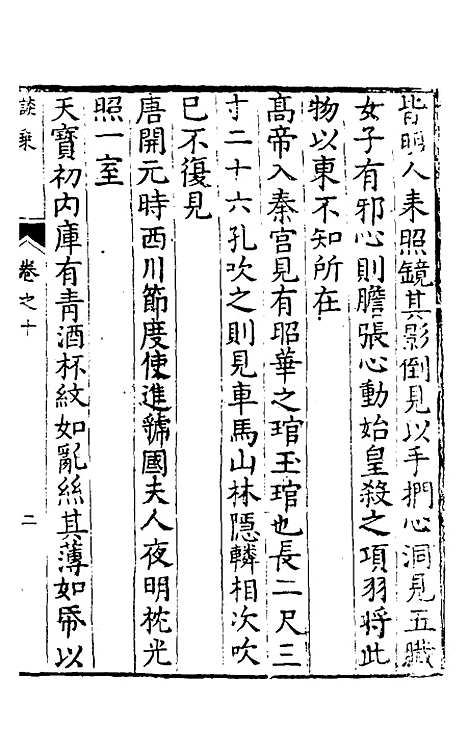 皆明人来照鏡其影倒見以手捫心洞見五臟
女子有邪心則膽張心動始皇殺之項羽將此
物以東不知所在
髙帝入秦宮見有昭華之琯玉琯也長二尺三
寸二十六孔吹之則見車馬山林隱轔相次吹
已不復見
唐開元時西川節度使進虢國夫人夜明枕光
照一室
天寶初内庫有青酒杯紋如亂絲其薄如帋以
談乘
卷之十
二